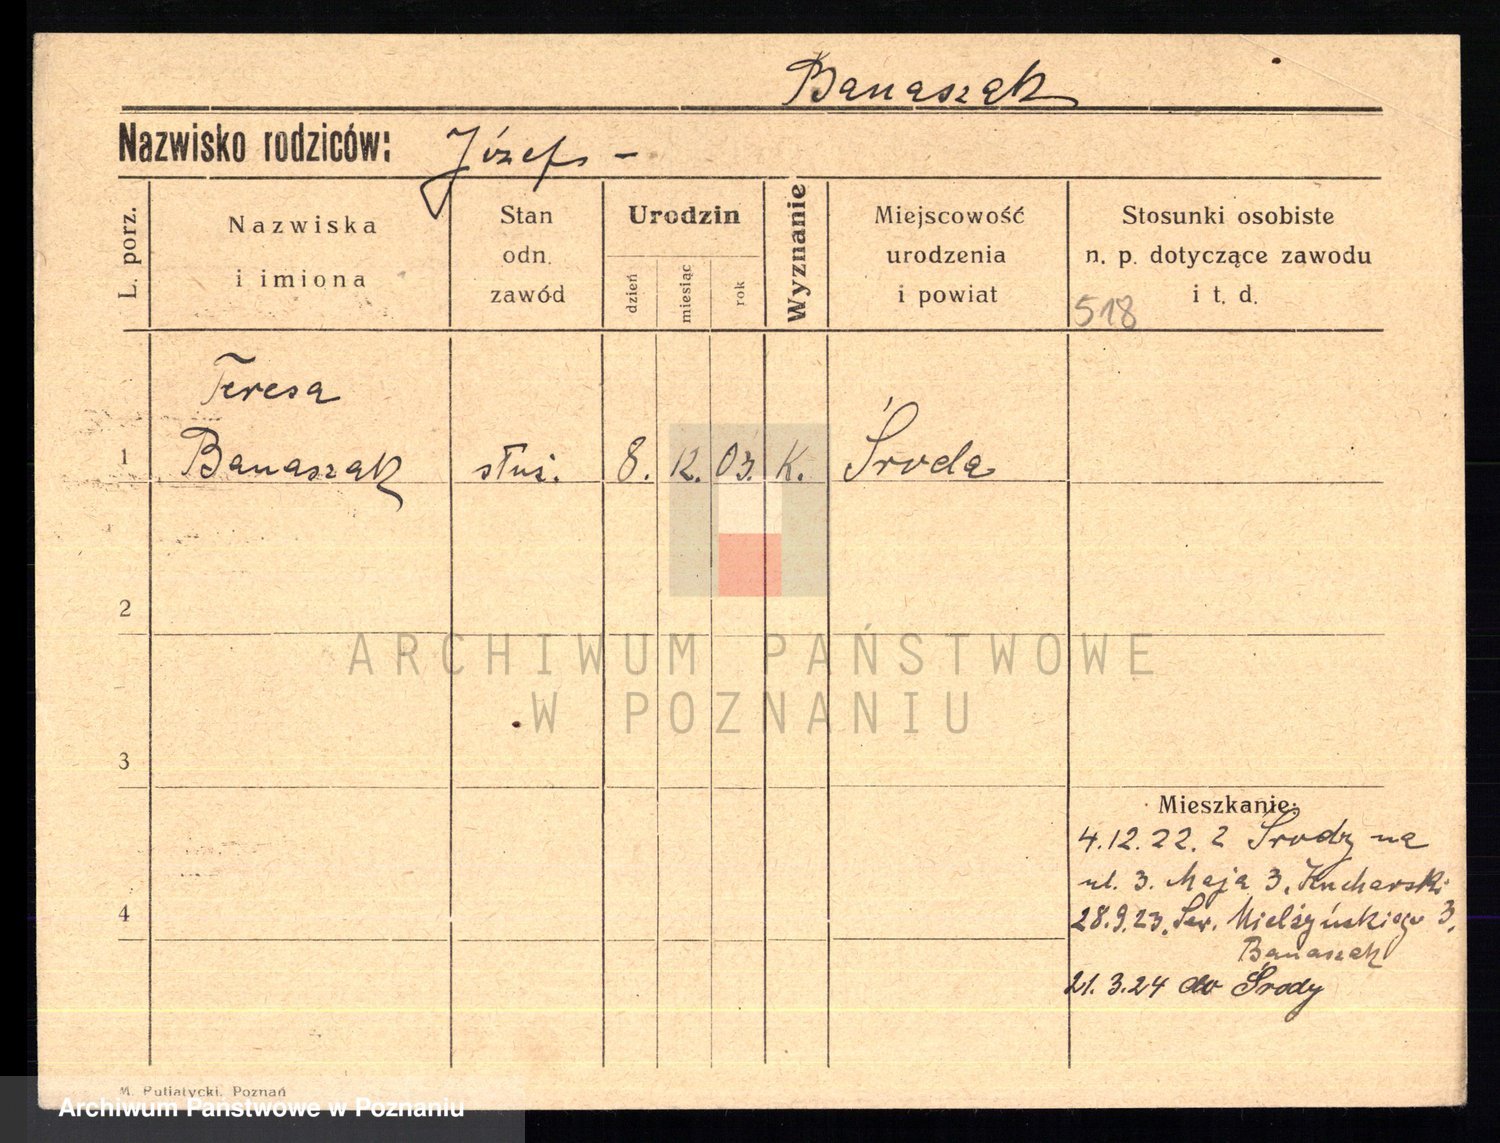 Banaszak
Nazwisko rodziców: Józef -
L. porz.
Nazwiska
i imiona
Stan
odn.
zawód
Urodzin
dzień
miesiąc
rok
Wyznanie
Miejscowość
urodzenia
i powiat
Stosunki osobiste
n. p. dotyczące zawodu
i t. d.
518
Teresa
1 Banaszak służ. 8. 12. 03. K. Środa
2
ARCHIWUM PAŃSTWOWE
W POZNANIU
3
Mieszkanie:
4.12.22. z Środy na
ul. 3. Maja 3, Kucharski
4
28.9.23. Sew. Mielżyńskiego 3.
Banaszak
21.3.24 do Środy
M. Putiatycki, Poznań
Archiwum Państwowe w Poznaniu